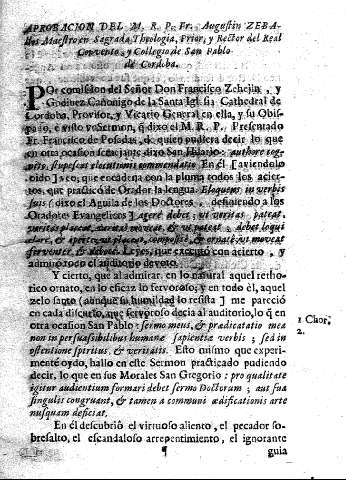 APROBACION DEL M. R. P. Fr. Augustin ZEBA-
llos Maestro en Sagrada Theologia, Prior, y Rector del Real
Convento, y Collegio de San Pablo
de Cordoba.
POr comission del Señor Don Francisco Zehejin, y
Godinez Canonigo de la Santa Iglesia Cathedral de
Cordoba, Provisor, y Vicario General en ella, y su Obis-
pado, è visto vo Sermon, q̃ dixo el M. R. P. Presentado
Fr. Francisco de Posadas, de quien pudiera decir lo que
en otra ocasion San Hilario: authore cog-
nito, stupescat elocutionis commendatio. En èl
oido ; que encadena con la pluma todos los acier-
tos, que practicò de Orador la lengua. Eloquens in verbis
suis (dixo el Aguila de los Doctores, definiendo à los
Oradores Evangelicos) agere debet; ut veritas pateat,
veritas placeat, veritas moveat, & ut pateat; debet loqui
clarè, & apertè; ut placeat, compositè, & ornatè; ut moveat
ferventer, & devotè. Leyes, que executò con acierto, y
admirò todo el auditorio devoto.
Y cierto, que al admirar, en lo natural aquel retho-
rico ornato, en lo eficaz lo fervoroso, y en todo èl, aquel
zelo santo (aunque su humildad lo resista) me pareciò
en cada discurso, que fervoroso decia al auditorio, lo q̃ en
otra ocasion San Pablo: sermo meus, & prædicatio mea
non in persuasibilibus humanæ sapientiæ verbis; sed in
ostensione spiritus, & veritatis. Esto mismo que experi-
mentè oydo, hallo en este Sermon practicado pudiendo
decir, lo que en sus Morales San Gregorio: pro qualitate
igitur audientium formari debet sermo Doctorum; aut sua
singulis congruant, & tamen à communi ædificationis arte
nusquam deficiat.
1 Chor.
2.
En èl descubriò el virtuoso aliento, el pecador so-
bresalto, el escandaloso arrepentimiento, el ignorante
¶
guia